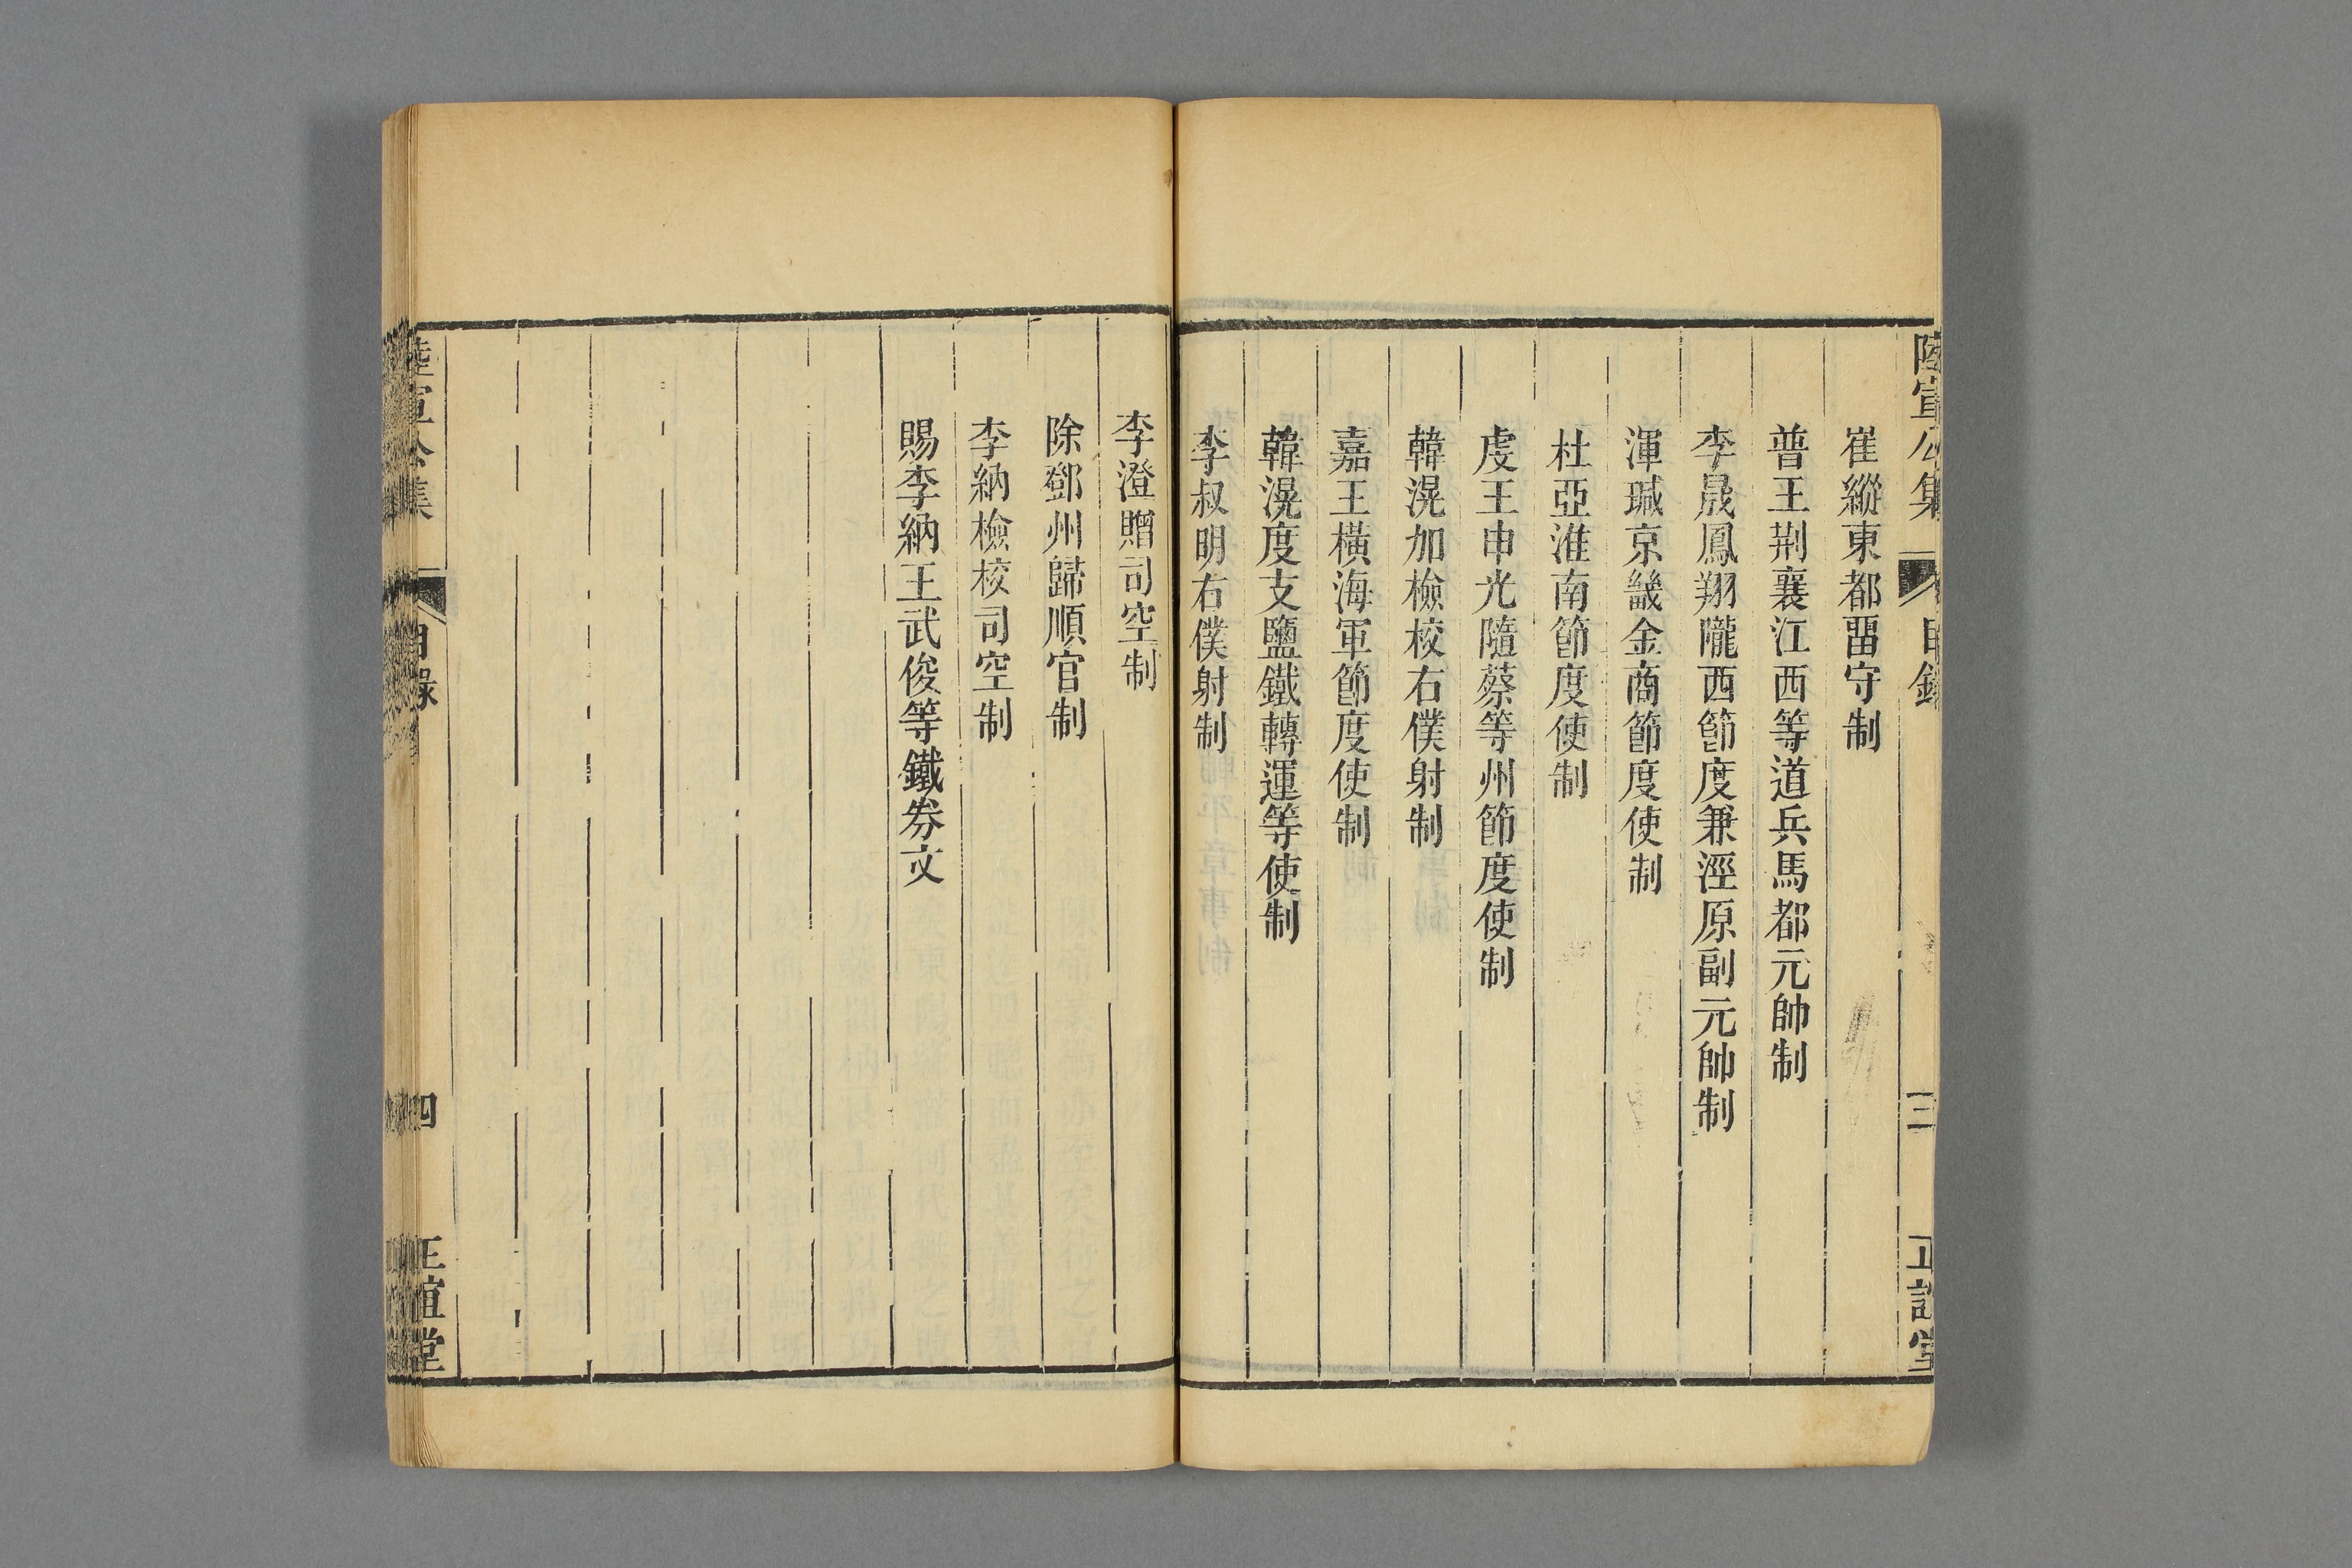 陸宣公集 目錄 三 正誼堂
崔縱東都畱守制
普王荆襄江西等道兵馬都元帥制
李晟鳳翔隴西節度兼涇原副元帥制
渾瑊京畿金商節度使制
杜亞淮南節度使制
虔王申光隨蔡等州節度使制
韓滉加檢校右僕射制
嘉王橫海軍節度使制
韓滉度支鹽鐵轉運等使制
李叔明右僕射制
李澄贈司空制
除鄧州歸順官制
李納檢校司空制
賜李納王武俊等鐵券文
陸宣公集 目錄 四 正誼堂